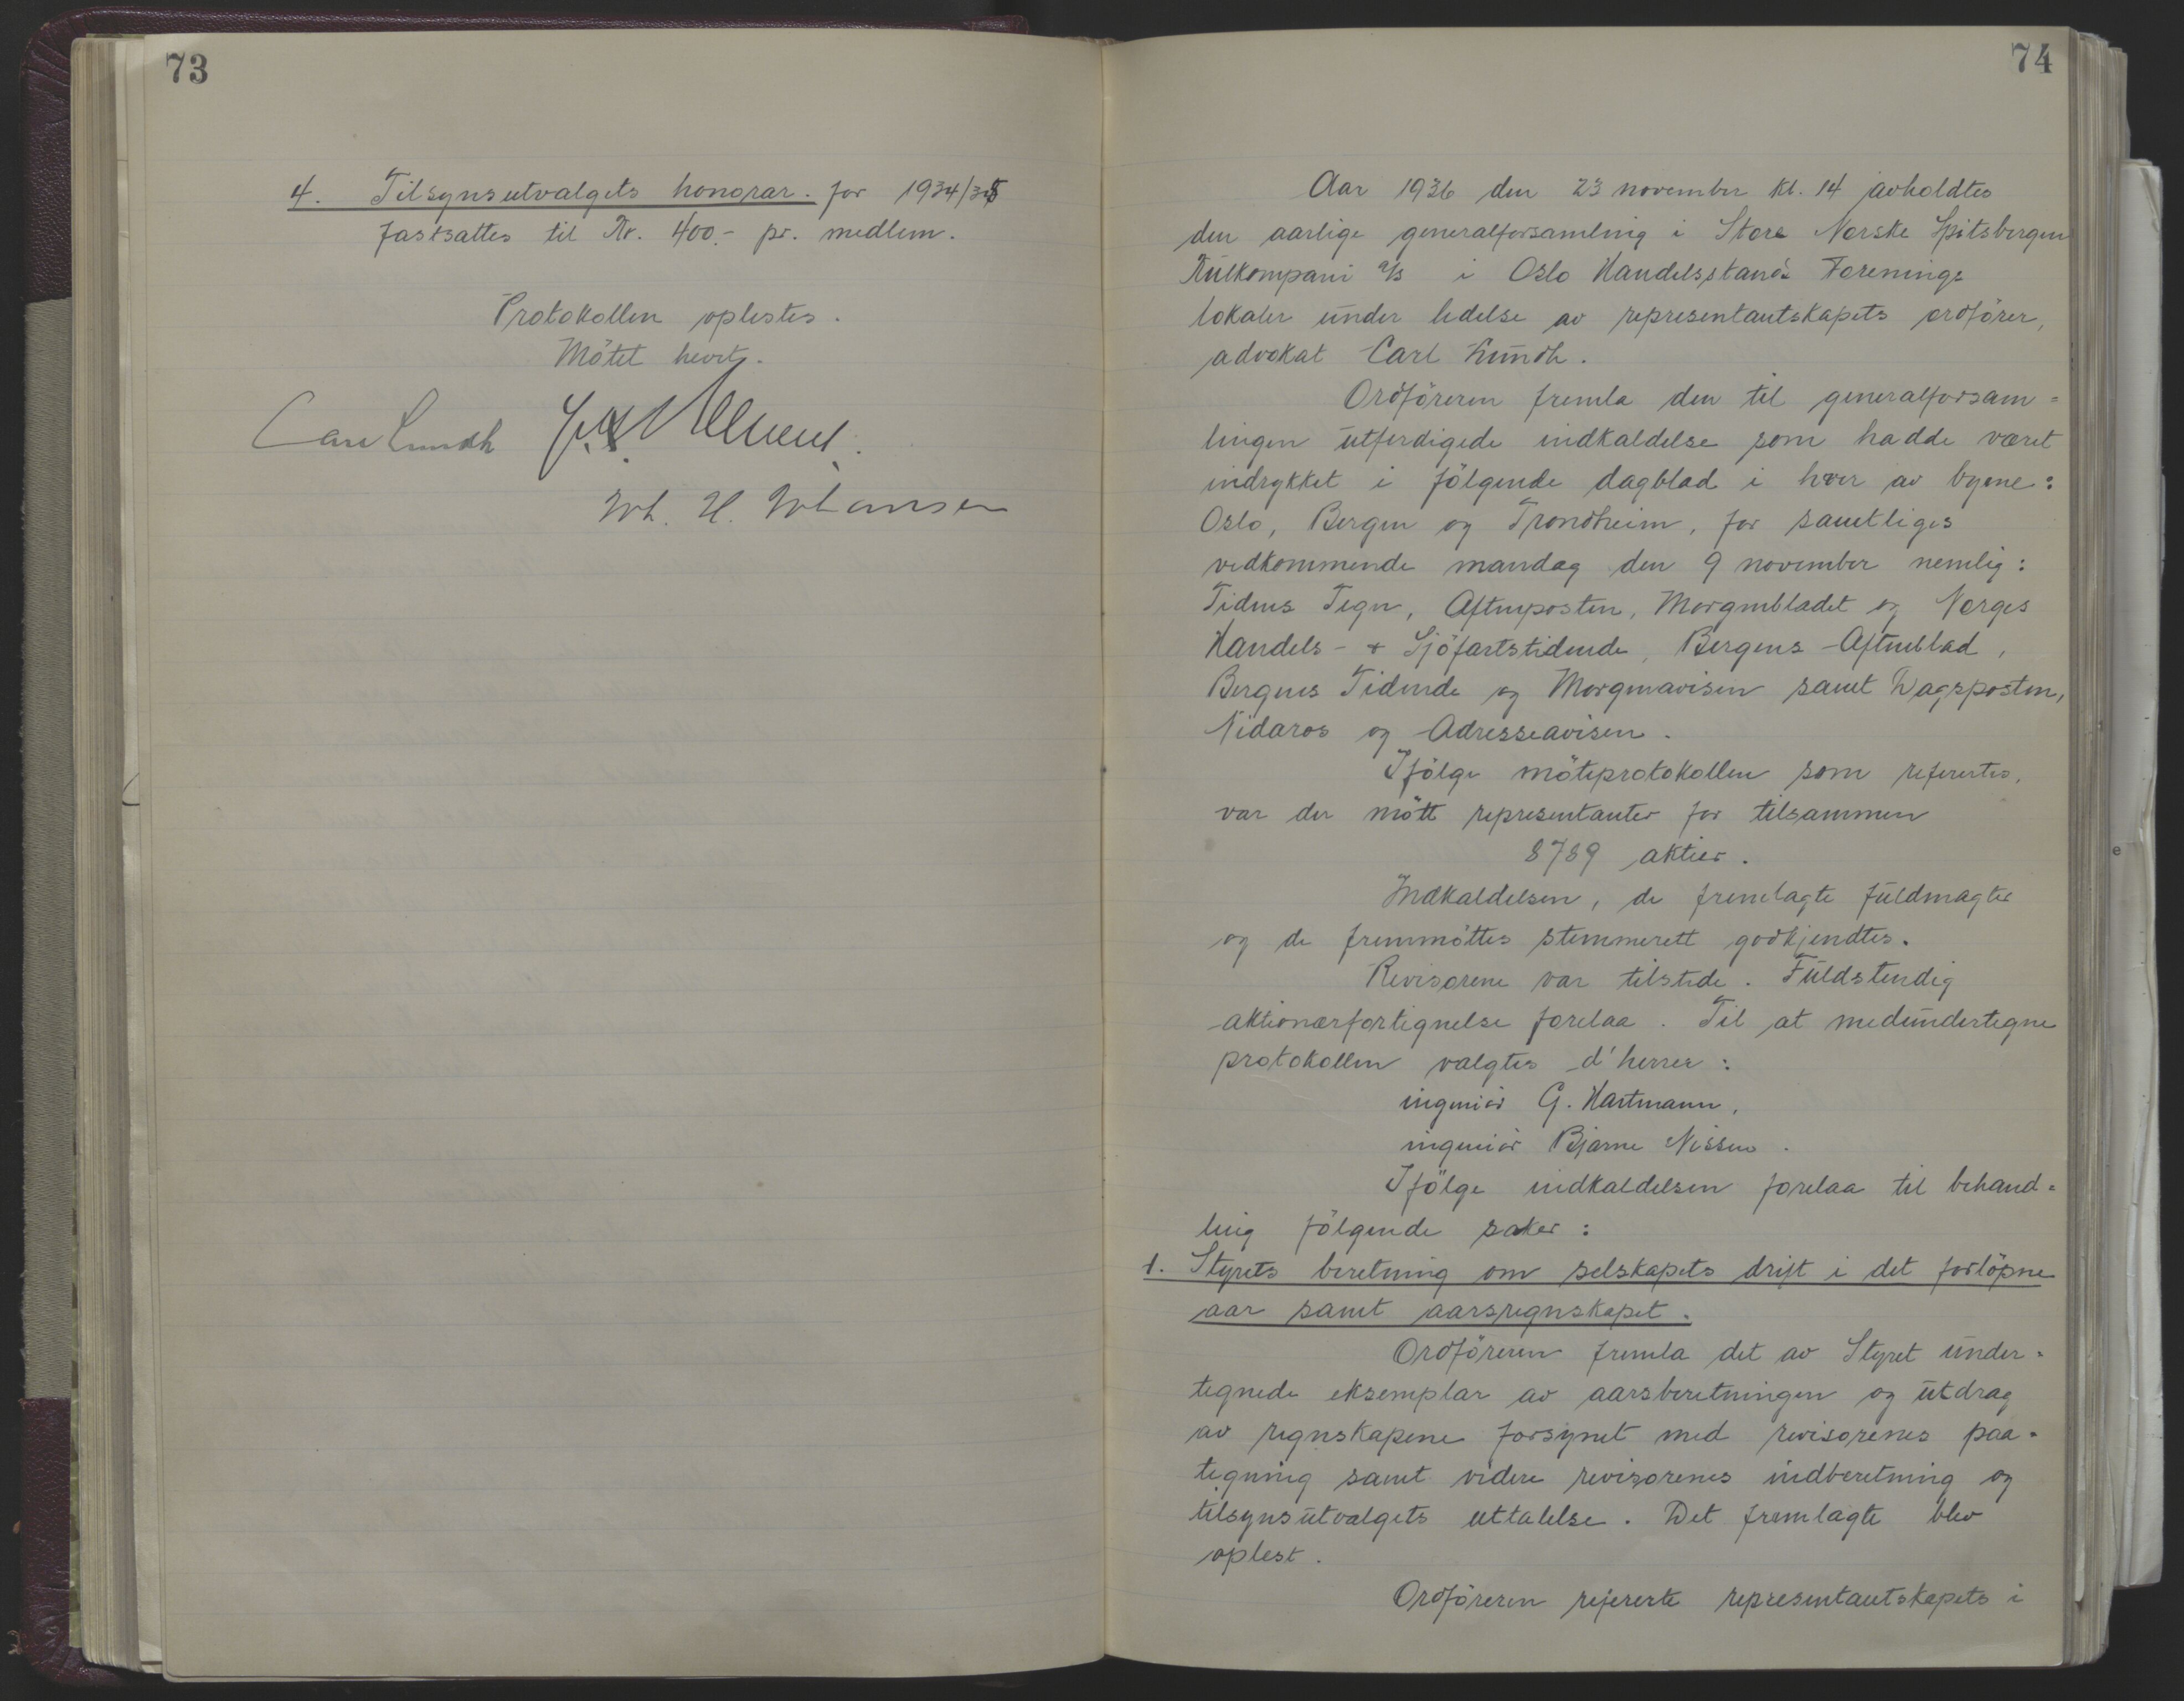 73
4. Tilsynsutvalgets honorar. for 1934/35
fastsattes til Kr. 400.- pr. medlem.
Protokollen oplestes.
Mötet hevet.
Carl Lundh
Joh. H. Johansen
74
Aar 1936 den 23 november kl. 14 avholdtes
den aarlige generalforsamling i Store Norske Spitsbergen
Kulkompani A/S i Oslo Handelsstands Forenings
lokaler under ledelse av representantskapets ordförer,
advokat Carl Lundh.
Ordföreren fremla den til generalforsam=
lingen utferdigede indkaldelse som hadde været
indrykket i fölgende dagblad i hver av byene:
Oslo, Bergen og Trondheim, for samtliges
vedkommende mandag den 9 november nemlig:
Tidens Tegn, Aftenposten, Morgenbladet og Norges
Handels- & Sjöfartstidende, Bergens Aftenblad,
Bergens Tidende og Morgenavisen samt Dagsposten,
Nidaros og Adresseavisen.
Ifölge möteprotokollen som refertes,
var der mött representanter for tilsammen
8789 aktier.
Indkaldelsen, de fremlagte fuldmagter
og de fremmöttes stemmerett godkjendtes.
Revisorene var tilstede. Fuldstendig
aktionærfortegnelse forelaa. Til at medundertegne
protokollen valgtes d'herrer:
ingeniör G. Hartmann,
ingeniör Bjarne Nissen.
Ifölge indkaldelsen forelaa til behand=
ling fölgende saker:
1. Styrets beretning om selskapets drift i det forlöpne
aar samt aarsregnskapet.
Ordföreren fremla det av Styret under=
tegnede eksemplar av aarsberetningen og utdrag
av regnskapene forsynet med revisorenes paa=
tegning samt videre revisorenes indberetning og
tilsynsutvalgets uttalelse. Det fremlagte blev
oplest.
Ordföreren refererte representantskapets i